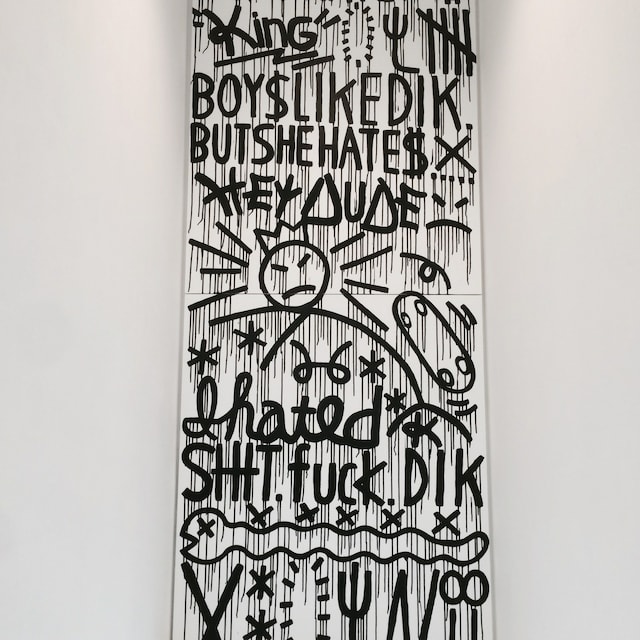 "King"
BOY$LIKEDIK.
BUTSHEHATE$.X
HEYDUDE
Ihated
SHIT.fuck.DIK